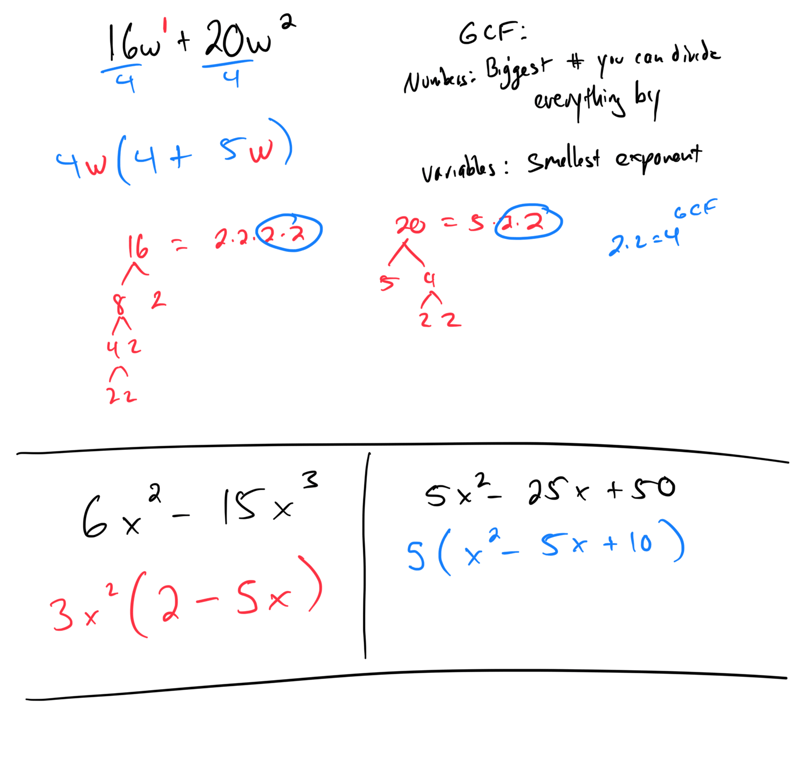 16w¹ + 20w²
4 4
4w(4 + 5w)
GCF:
Numbers: Biggest # you can divide
everything by
Variables: Smallest exponent
16 = 2·2·2·2
8 2
4 2
2 2
20 = 5·2·2
5 4
2 2
GCF
2·2=4
6x² – 15x³
3x²(2 – 5x)
5x² – 25x + 50
5(x² – 5x + 10)